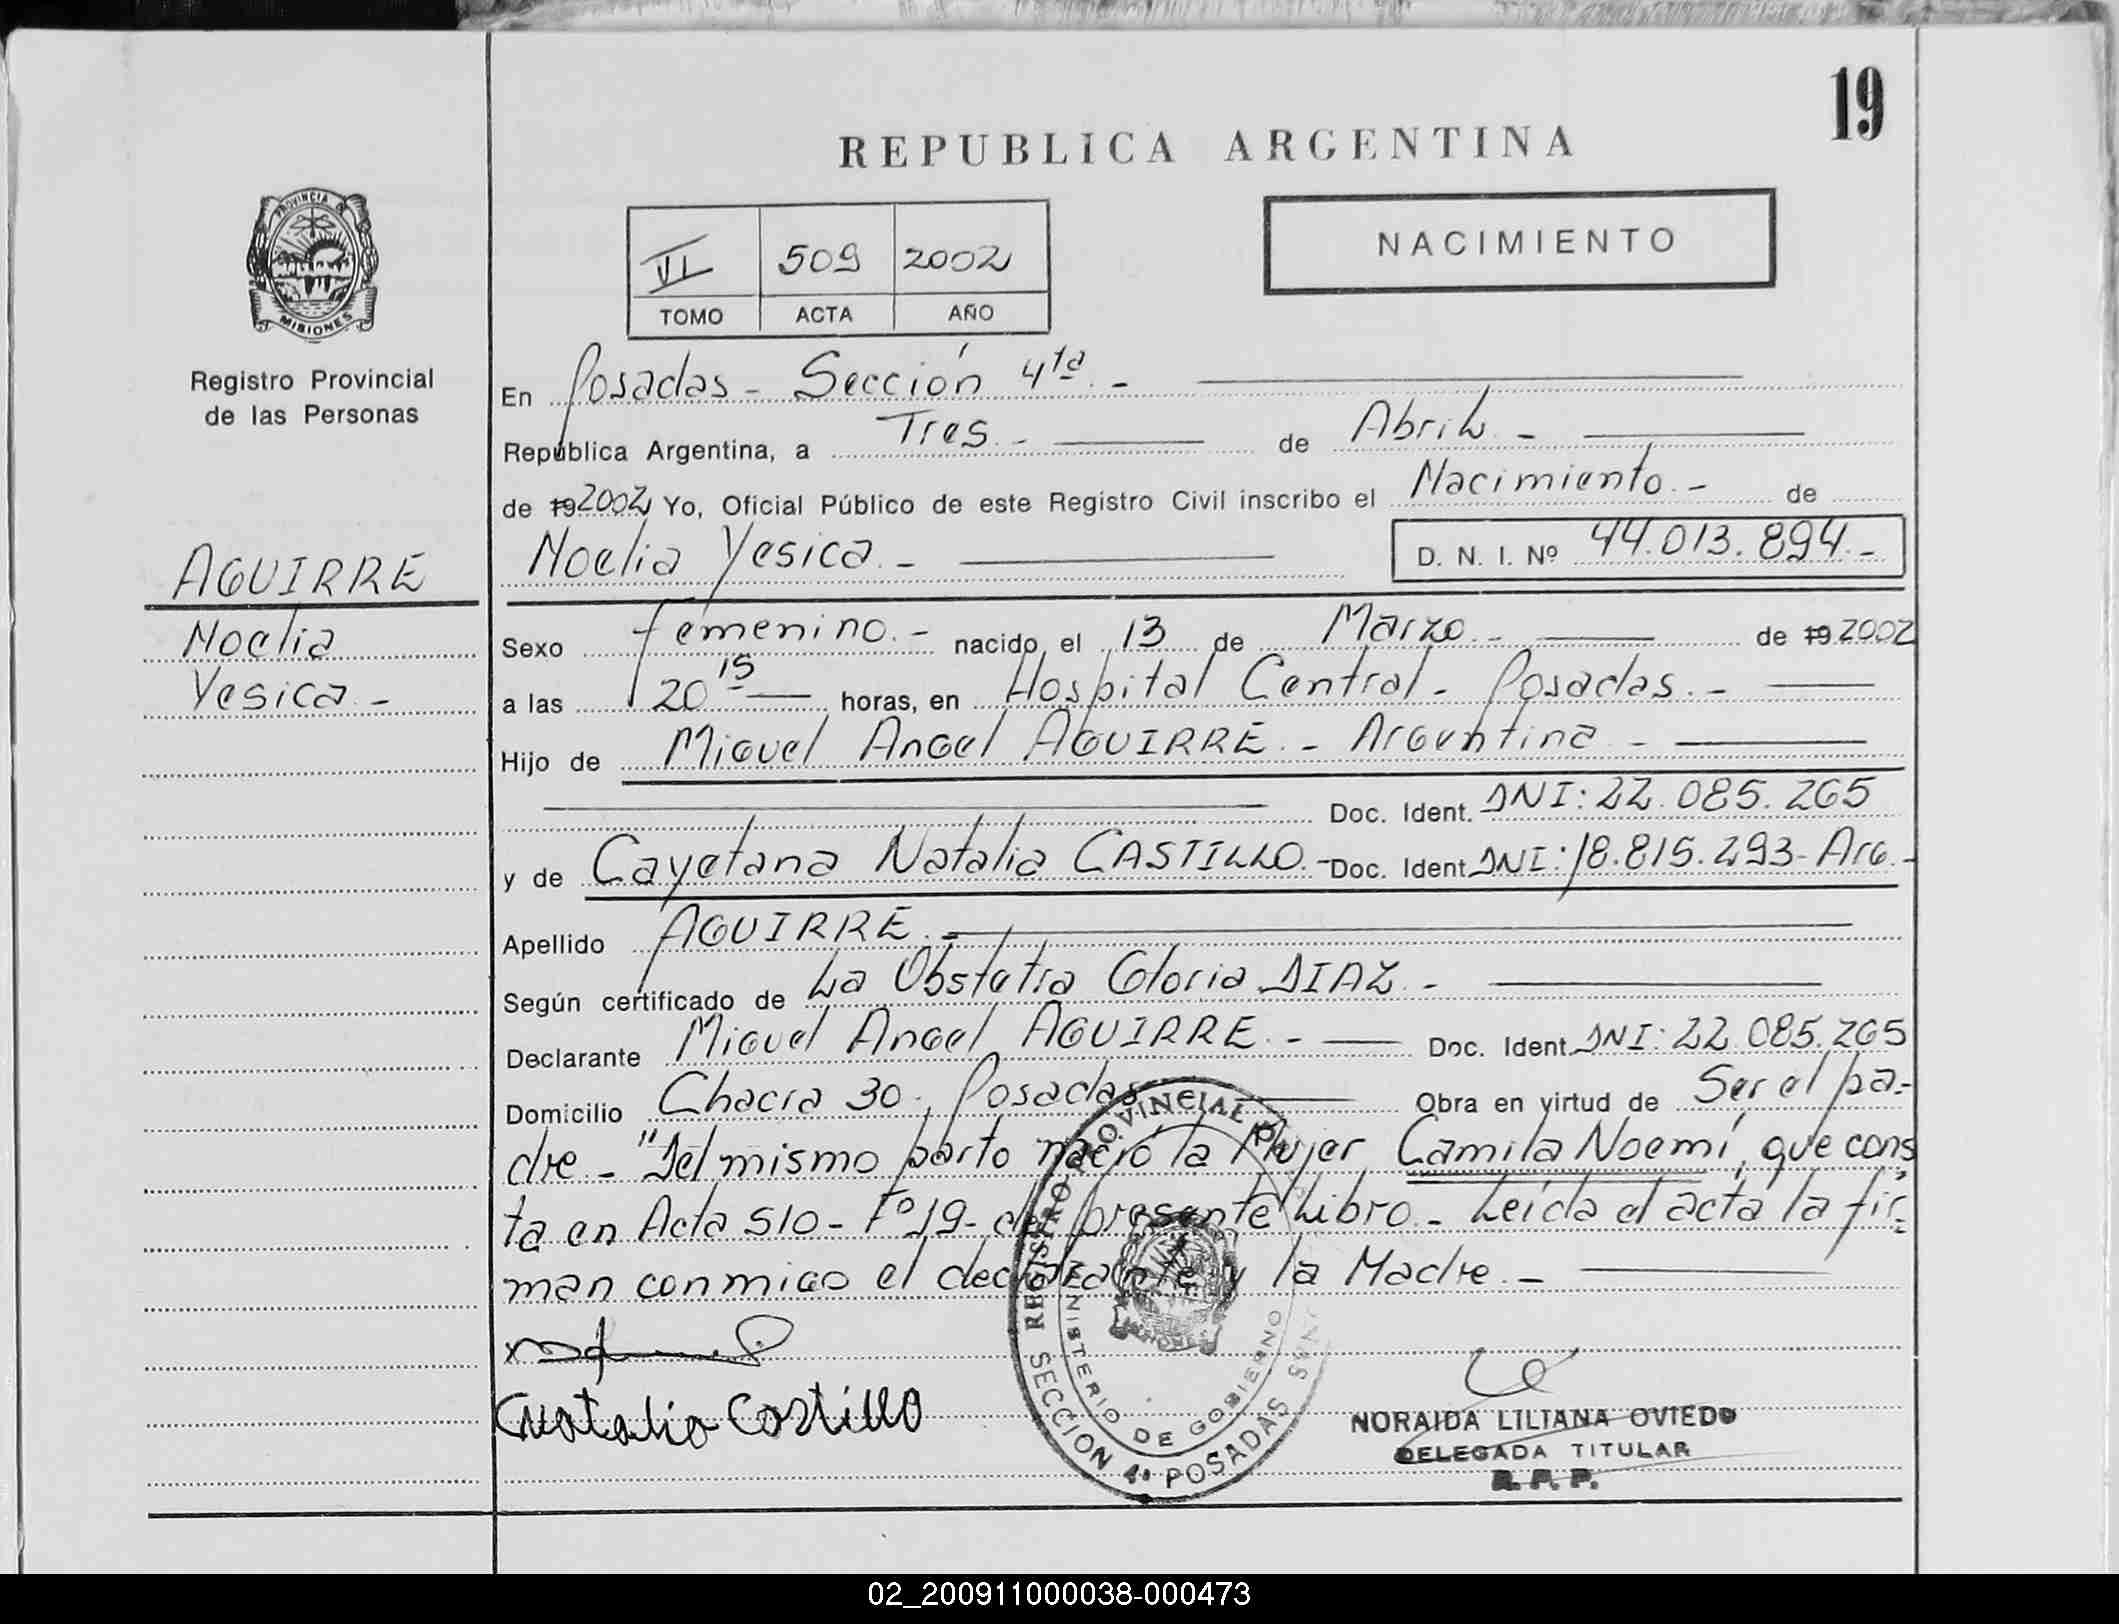 19
REPUBLICA ARGENTINA
PROVINCIA DE
MISIONES
Registro Provincial
de las Personas
VI 509 2002
TOMO ACTA AÑO
NACIMIENTO
En Posadas - Sección 4ta. -
República Argentina, a Tres. - de Abril. -
de 192002 Yo, Oficial Público de este Registro Civil inscribo el Nacimiento. - de
Noelia Yesica. - D. N. I. Nº 44.013.894. -
AGUIRRE
Noelia
Yesica. -
Sexo femenino. - nacido el 13 de Marzo. - de 19 2002
a las 20 15 horas, en Hospital Central - Posadas. -
Hijo de Miguel Angel AGUIRRE. - Argentina -
Doc. Ident. DNI: 22.085.265
y de Cayetana Natalia CASTILLO. - Doc. Ident. DNI: 18.815.293 - Arg. -
Apellido AGUIRRE. -
Según certificado de La Obstetra Gloria DIAZ. -
Declarante Miguel Angel AGUIRRE. - Doc. Ident. DNI: 22.085.265
Domicilio Chacra 30. Posadas Obra en virtud de Ser el pa-
dre - "Del mismo parto nació la Mujer Camila Noemí, que cons
ta en Acta 510 - Fº 19 - del presente Libro. - Leída el acta la fir-
man conmigo el declarante y la Madre. -
Natalia Castillo
REGISTRO PROVINCIAL
MINISTERIO DE GOBIERNO
SECCION 4a POSADAS
NORAIDA LILIANA OVIEDO
DELEGADA TITULAR
R. P. P.
02_200911000038-000473